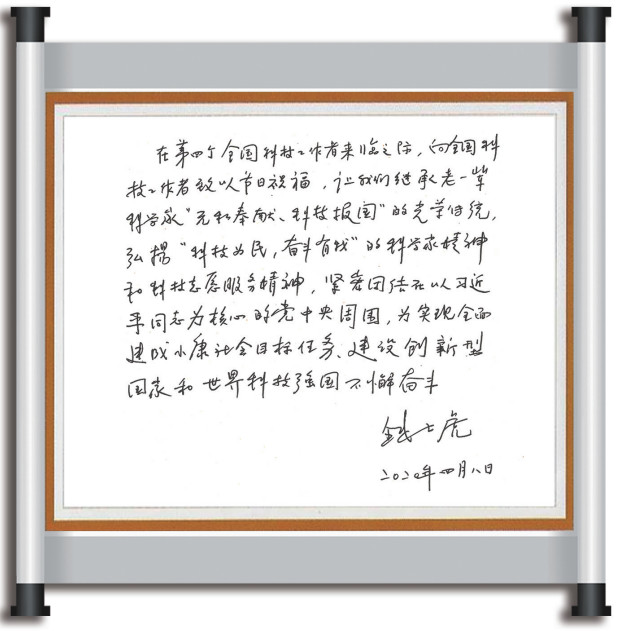 在第四个全国科技工作者来临之际，向全国科
技工作者致以节日祝福，让我们继承老一辈
科学家“无私奉献、科技报国”的光荣传统，
弘扬“科技为民，奋斗有我”的科学家精神
和科技志愿服务精神，紧密团结在以习近
平同志为核心的党中央周围，为实现全面
建成小康社会目标任务、建设创新型
国家和世界科技强国不懈奋斗
钱七虎
2020年四月八日